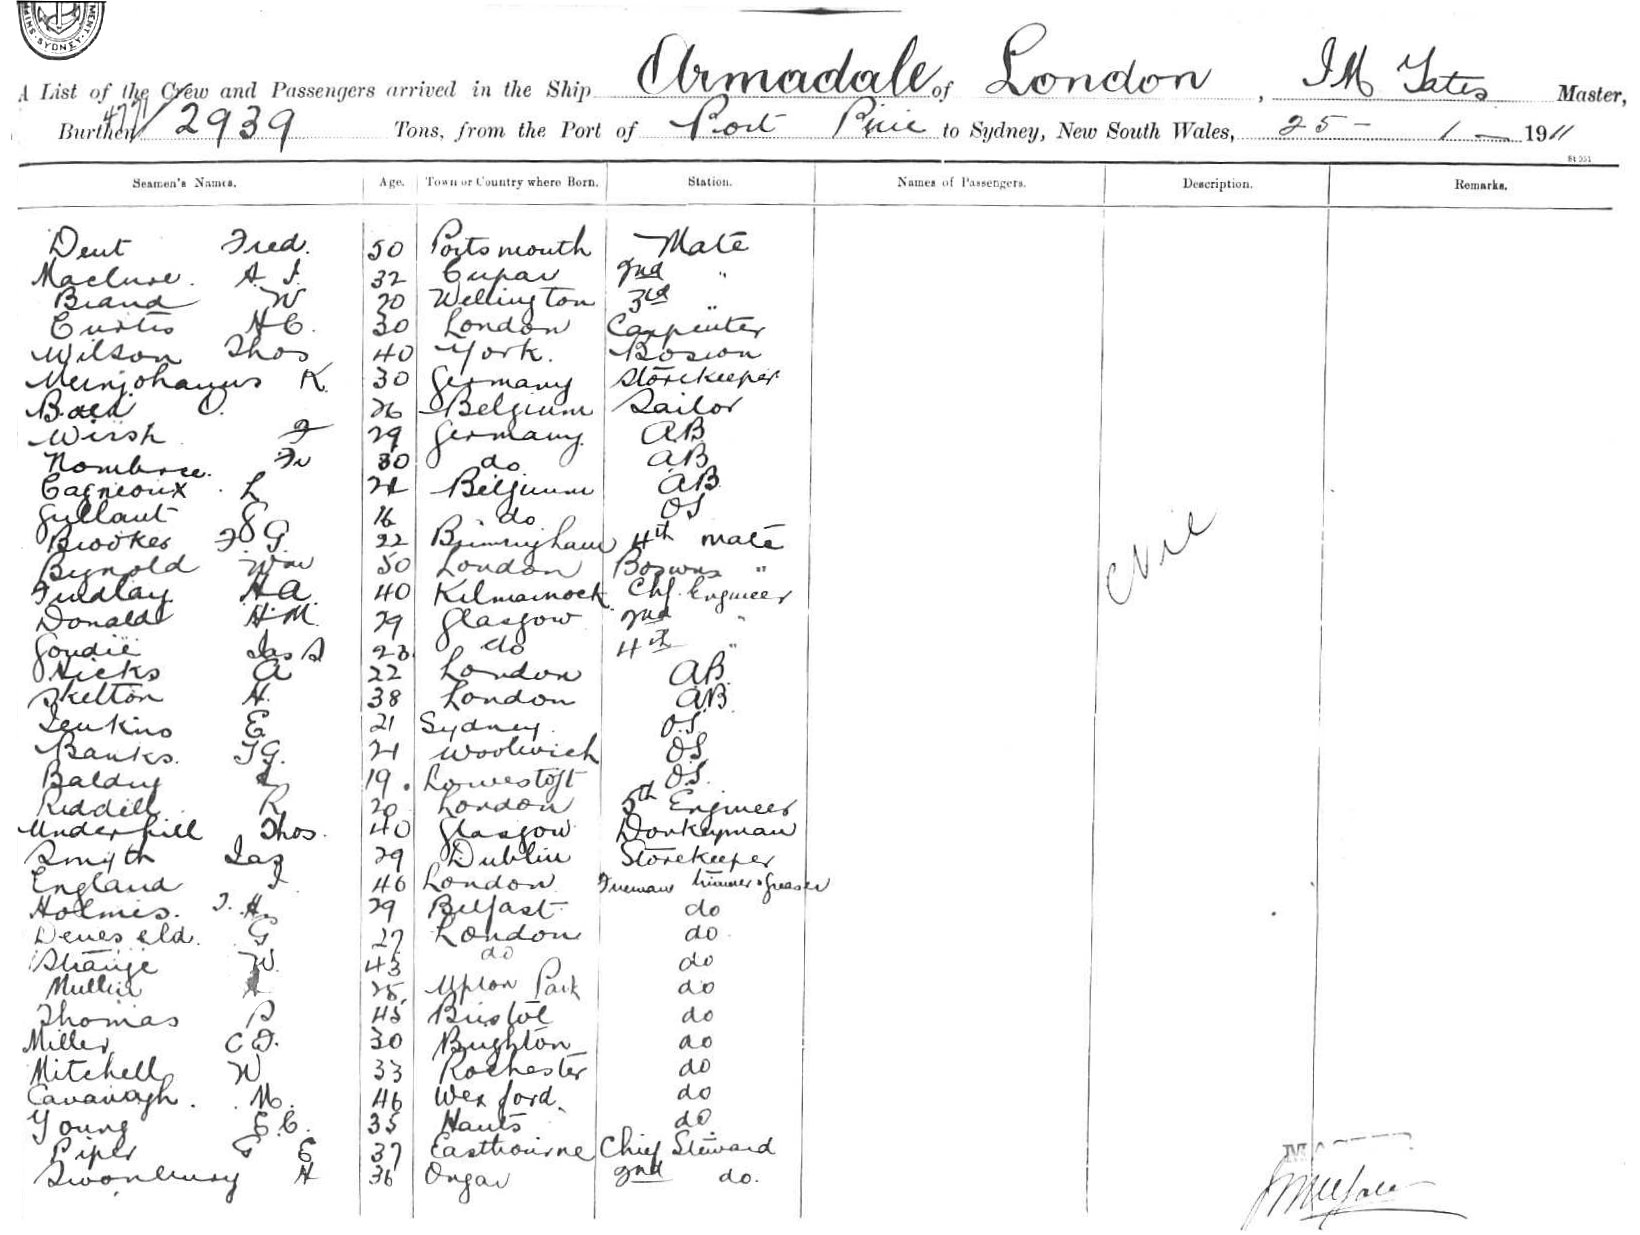 SYDNEY
A List of the Crew and Passengers arrived in the Ship Armadale of London, J M Yates Master,
Burthen 4777/2939 Tons, from the Port of Port Pirie to Sydney, New South Wales, 25 - 1 - 1911
St 351
Seamen's Names. Age. Town or Country where Born. Station. Names of Passengers. Description. Remarks.
Dent Fred. 50 Portsmouth Mate
Maclure. A. J. 32 Cupar 2nd "
Brand W 20 Wellington 3rd "
Curtis H C. 30 London Carpenter
Wilson Thos 40 York. Bosion
Meinjohanns K. 30 Germany Storekeeper
Baed C. 26 Belgium Sailor
Wirsh F 29 Germany AB
Nombree. Fr 30 do AB
Cagneoux L 21 Belgium AB
Gullaut G 16 do OS
Brookes F G. 22 Birmingham 4th mate
Bynold Wm 50 London Bosuns "
Findlay H A. 40 Kilmarnock Chf. Engineer
Donald H. M. 29 Glasgow 2nd "
Goudie Jas S 23 do 4th "
Hicks A 22 London AB.
Skelton H. 38 London AB.
Jenkins E 21 Sydney. O.S.
Banks. T G. 21 Woolwich OS
Baldry 19. Lowestoft OS.
Riddell R 20 London 5th Engineer
Underhill Thos. 40 Glasgow Donkeyman
Smyth Jas 29 Dublin Storekeeper
England J 46 London Fireman trimmer & Greaser
Holmes. J. H. 29 Belfast do
Denes eld. G 27 London do
Strange W. 43 do do
Mullin A 25. Upton Park do
Thomas P 45 Bristol do
Miller C F. 30 Brighton do
Mitchell W 33 Rochester do
Cavanagh. M. 46 Wexford. do
Young E. C. 35 Hants do
Piper G E 37 Eastbourne Chief Steward
Swonbury H 36 Ongar 2nd do.
Nil
J M Yates